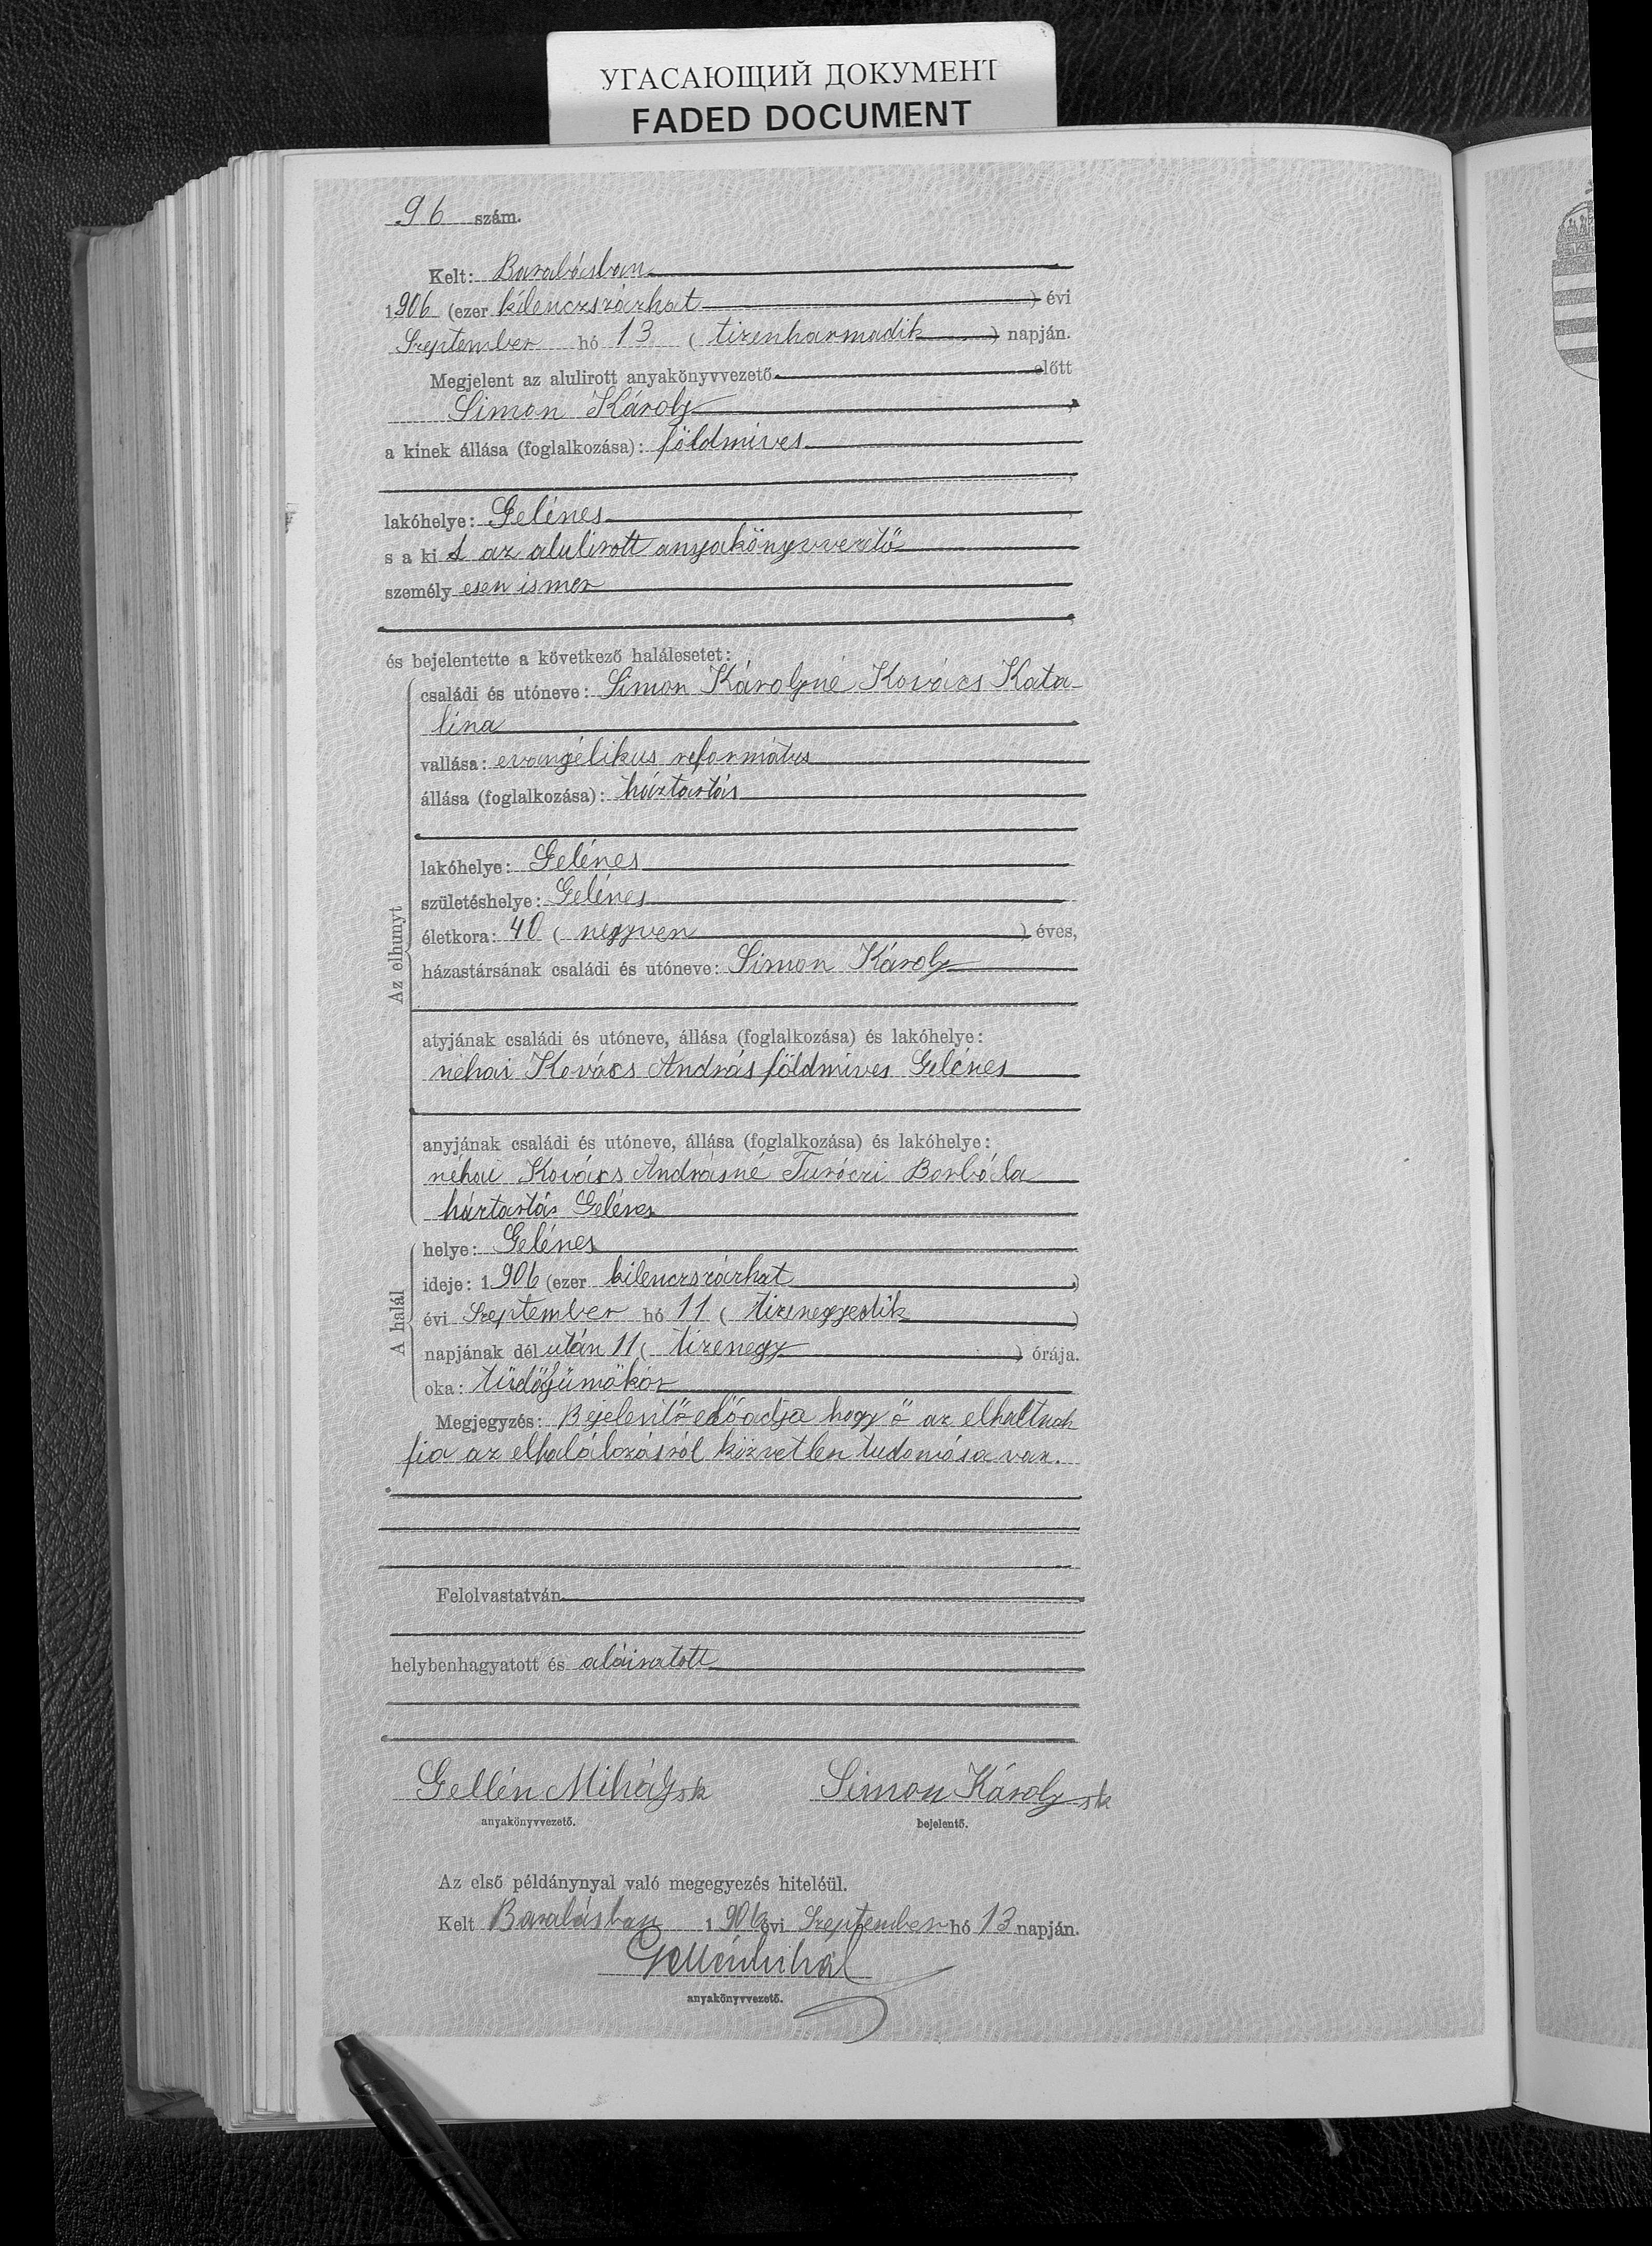 УГАСАЮЩИЙ ДОКУМЕНТ
FADED DOCUMENT
96 szám.
Kelt: Barabásban
1906 (ezer kilenczszázhat) évi
Szeptember hó 13 (tizenharmadik) napján.
Megjelent az alulirott anyakönyvvezető előtt
Simon Károly,
a kinek állása (foglalkozása): földmives
lakóhelye: Gelénes,
s a ki t az alulirott anyakönyvvezető
személy esen ismer
és bejelentette a következő halálesetet:
Az elhunyt
családi és utóneve: Simon Károlyné Kovács Kata-
lina
vallása: evangélikus református
állása (foglalkozása): háztartás
lakóhelye: Gelénes
születéshelye: Gelénes
életkora: 40 (negyven) éves,
házastársának családi és utóneve: Simon Károly
atyjának családi és utóneve, állása (foglalkozása) és lakóhelye:
néhai Kovács András földmives Gelénes
anyjának családi és utóneve, állása (foglalkozása) és lakóhelye:
néhai Kovács Andrásné Turóczi Borbála
háztartás Gelénes
A halál
helye: Gelénes
ideje: 1906 (ezer kilenczszázhat)
évi Szeptember hó 11 (tizenegyedik)
napjának dél után 11 (tizenegy) órája.
oka: tüdőgümőkór
Megjegyzés: Bejelentő előadja hogy ő az elhaltnak
fia az elhalálozásról közvetlen tudomása van.
Felolvastatván
helybenhagyatott és aláiratott
Gellén Mihály sk Simon Károly sk
anyakönyvvezető. bejelentő.
Az első példánynyal való megegyezés hiteléül.
Kelt Barabásban 1906 évi Szeptember hó 13 napján.
Gellén Mihál
anyakönyvvezető.